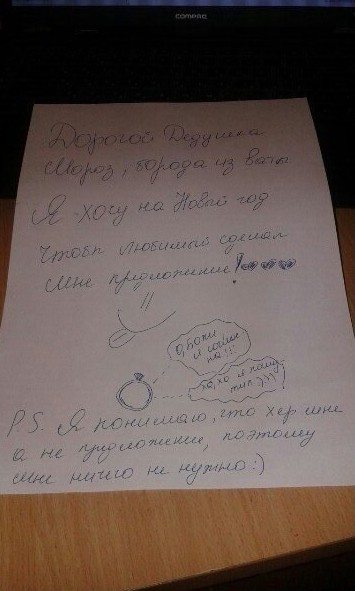 COMPAQ
Дорогой Дедушка
Мороз, борода из ваты
Я хочу на Новый год
чтобы любимый сделал
мне предложение!
О, Боже
я соглас
на!!!
ха, ха я пошу-
тил :)))
P.S. Я понимаю, что хер мне
а не предложение, поэтому
мне ничего не нужно :)